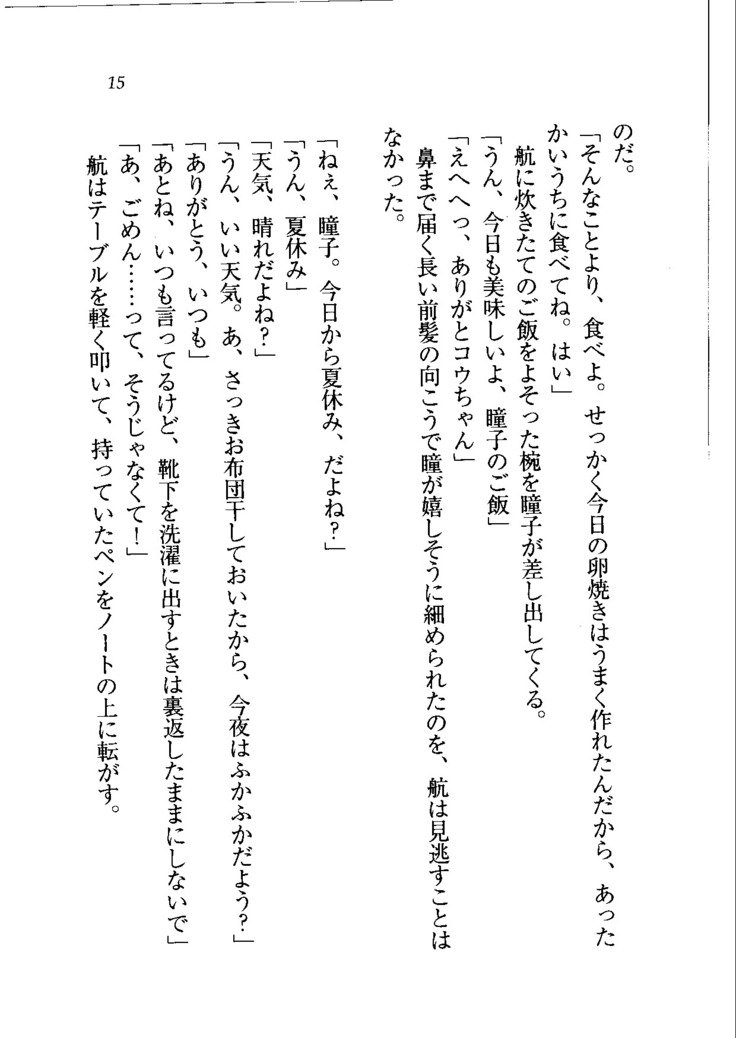 15
のだ。
「そんなことより、食べよ。せっかく今日の卵焼きはうまく作れたんだから、あった
かいうちに食べてね。はい」
航に炊きたてのご飯をよそった椀を瞳子が差し出してくる。
「うん、今日も美味しいよ、瞳子のご飯」
「えへへっ、ありがとコウちゃん」
鼻まで届く長い前髪の向こうで瞳が嬉しそうに細められたのを、航は見逃すことは
なかった。
「ねぇ、瞳子。今日から夏休み、だよね?」
「うん、夏休み」
「天気、晴れだよね?」
「うん、いい天気。あ、さっきお布団干しておいたから、今夜はふかふかだよう?」
「ありがとう、いつも」
「あとね、いつも言ってるけど、靴下を洗濯に出すときは裏返したままにしないで」
「あ、ごめん……って、そうじゃなくて!」
航はテーブルを軽く叩いて、持っていたペンをノートの上に転がす。